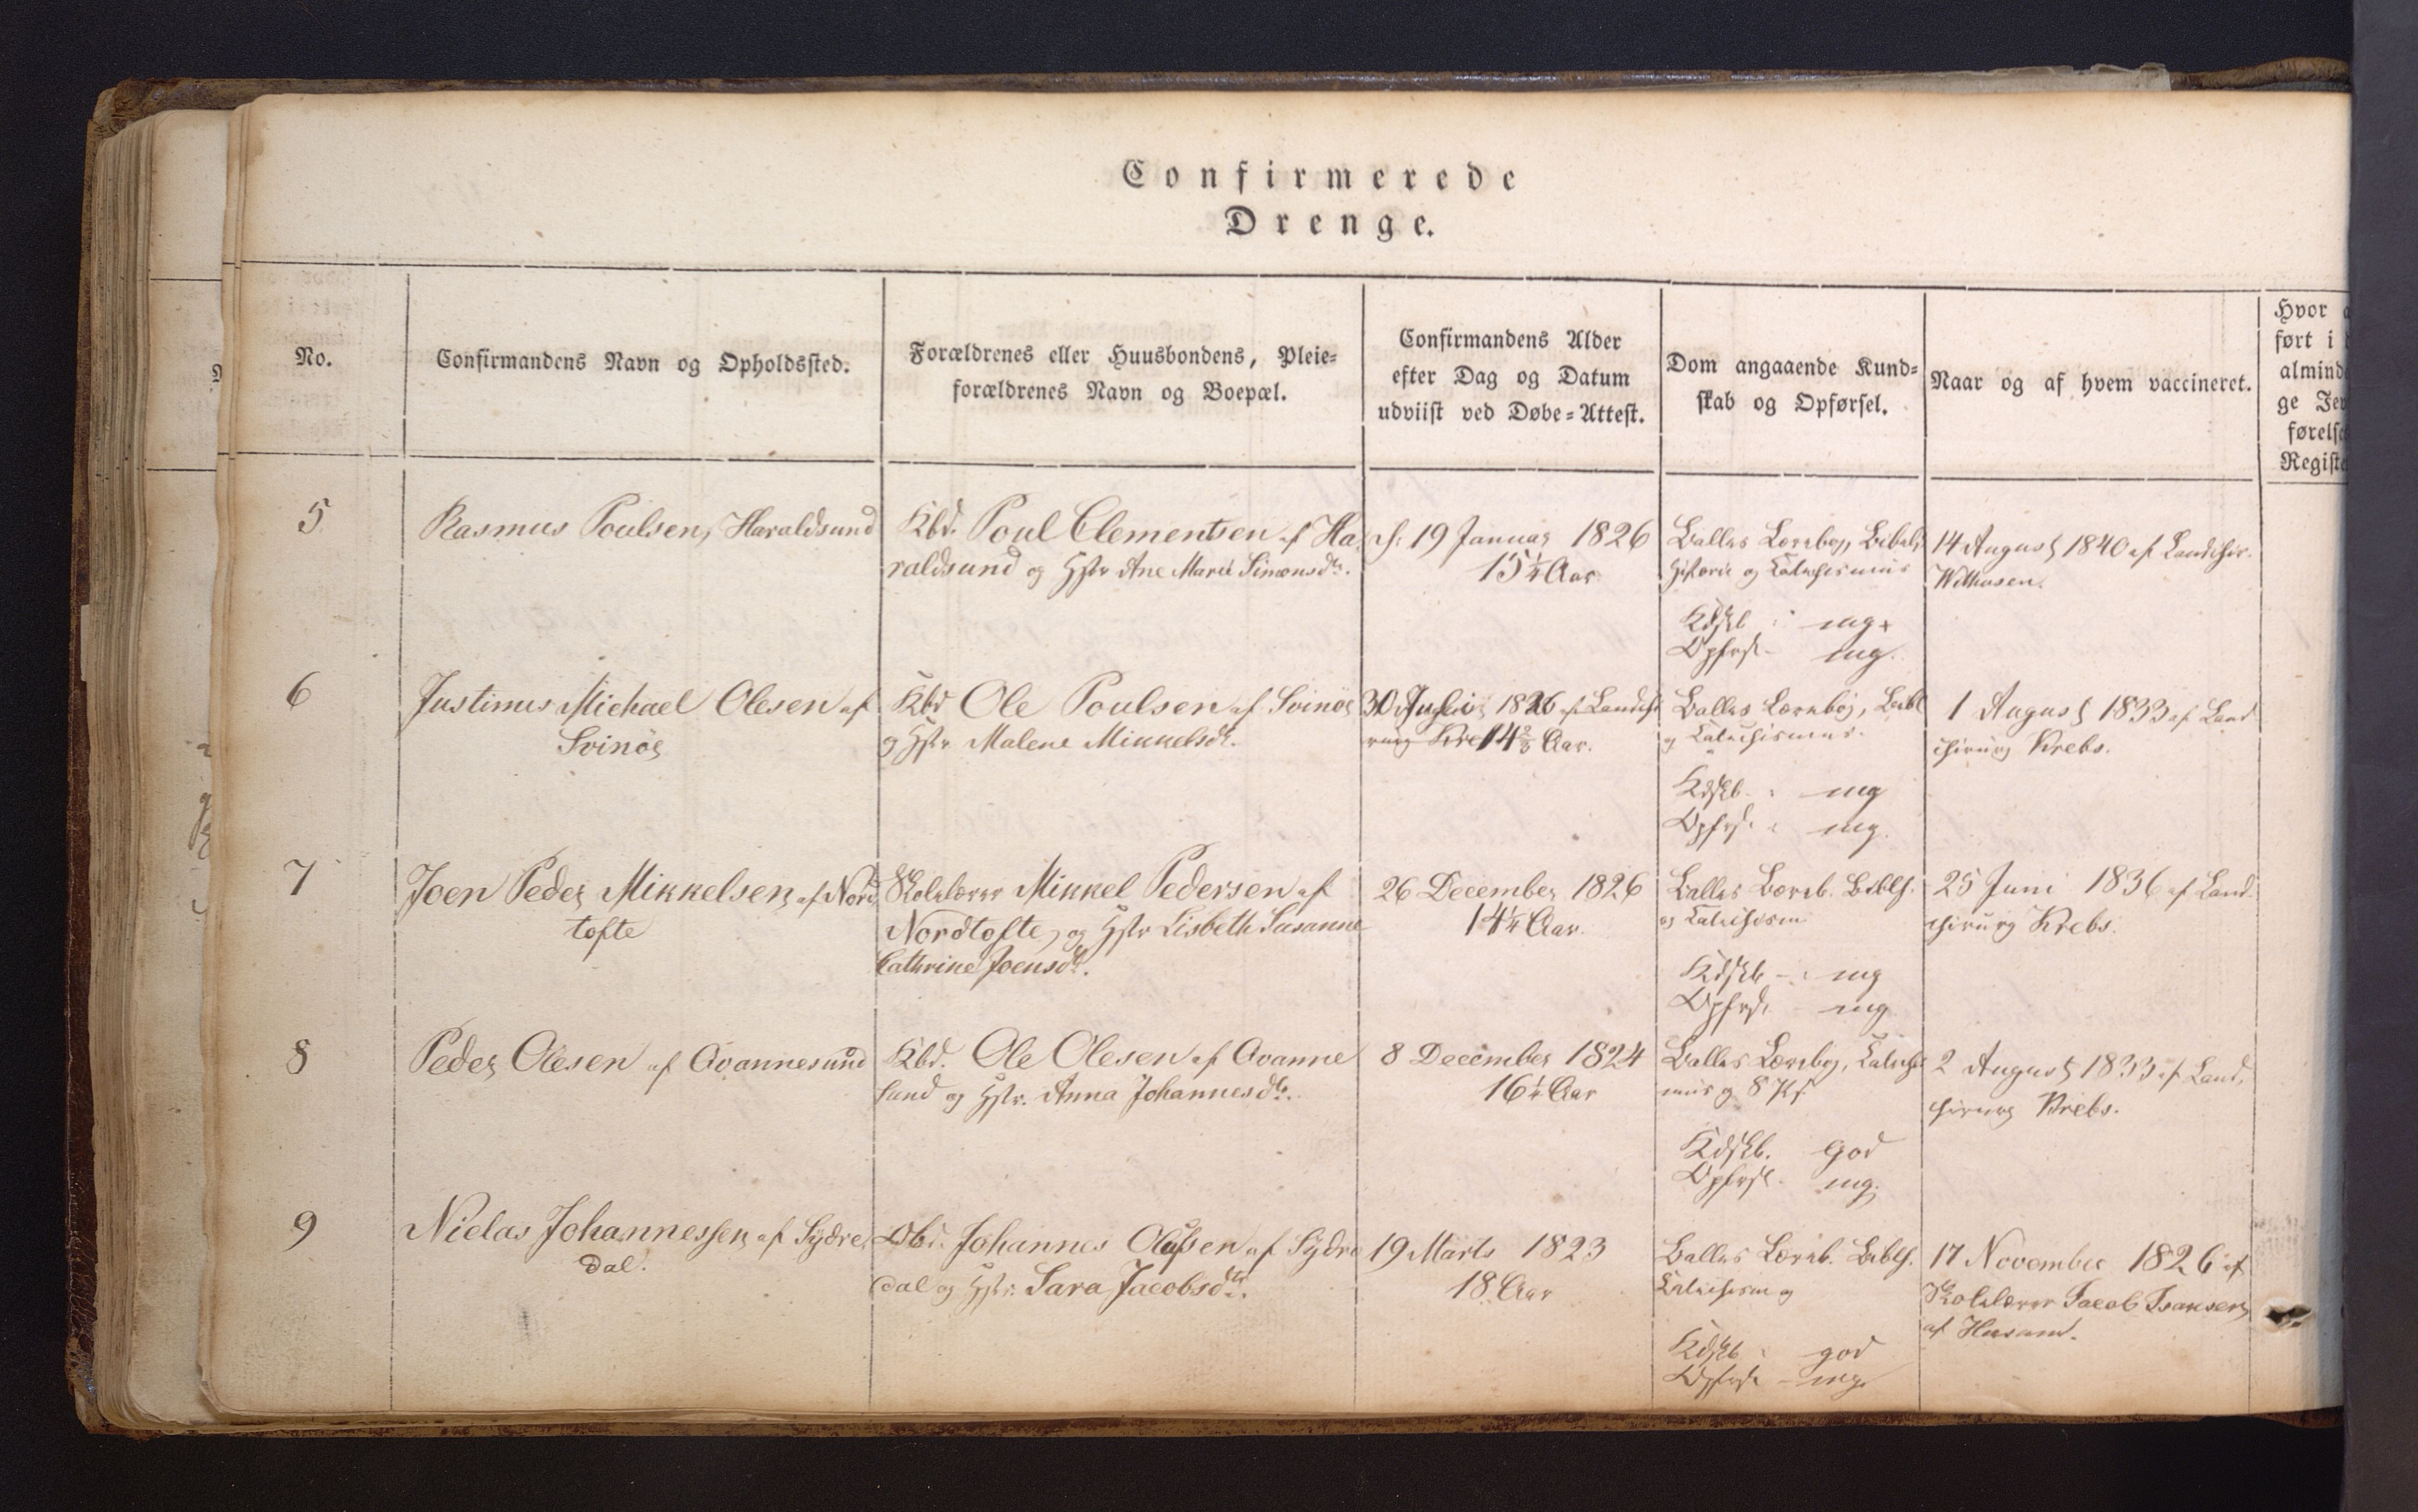 Confirmerede
Drenge.
No.
Confirmandens Navn og Opholdssted.
Forældrenes eller Huusbondens, Pleie=
forældrenes Navn og Boepæl.
Confirmandens Alder
efter Dag og Datum
udviist ved Døbe=Attest.
Dom angaaende Kund=
skab og Opførsel.
Naar og af hvem vaccineret.
Hvor
ført i
almind
ge
førelse
Registe
5
Rasmus Poulsen, Haraldsund
Kbd. Poul Clementsen af Ha
raldsund og Hstr Ane Marie Simonsdtr.
f. 19 Januar 1826
15¼ Aar
Balles Lærebog, Bibels
Historie og Katechismus
Kdskb : mg+
Opførsl. mg.
14 August 1840 af Landchir.
Wilhasen.
6
Justinus Michael Olesen af
Svinöe
Kbd Ole Poulsen af Svinöe
og Hstr. Malene Mikkelsdtr.
30 Juli 1826 af Landchi
rurg Kre 14⅔ Aar.
Balles Lærebog, Bibl
og Katechismus.
Kdskb. : mg
Opførsl. : mg.
1 August 1833 af Land
chirurg Krebs.
7
Joen Peder Mikkelsen af Nord
tofte
Skolelærer Mikkel Pedersen af
Nordtofte, og Hstr Lisbeth Susanne
Cathrine Joensdtr.
26 December 1826
14¼ Aar.
Balles Læreb. Biblh.
og Katechism
Kdskb - : mg
Opførsl. mg
25 Juni 1836 af Land
chirurg Krebs.
8
Peder Olesen af Qvannesund
Kbd. Ole Olesen af Qvanne
sund og Hstr. Anna Johannesdtr.
8 December 1824
16¼ Aar
Balles Lærebog, Katechis
mus og
Kdskb. God
Opførsl. mg.
2 August 1833 af Land,
chirurg Krebs.
9
Nielas Johannessen af Sydre
dal.
Johannes Olufsen af Sydre
dal og Hstr. Sara Jacobsdtr.
19 Marts 1823
18 Aar
Balles Læreb. Biblh.
Katechism og
Kdskb : god
Opførsl - mg.
17 November 1826 af
Skolelærer Jacob Isaksen
af Husand.